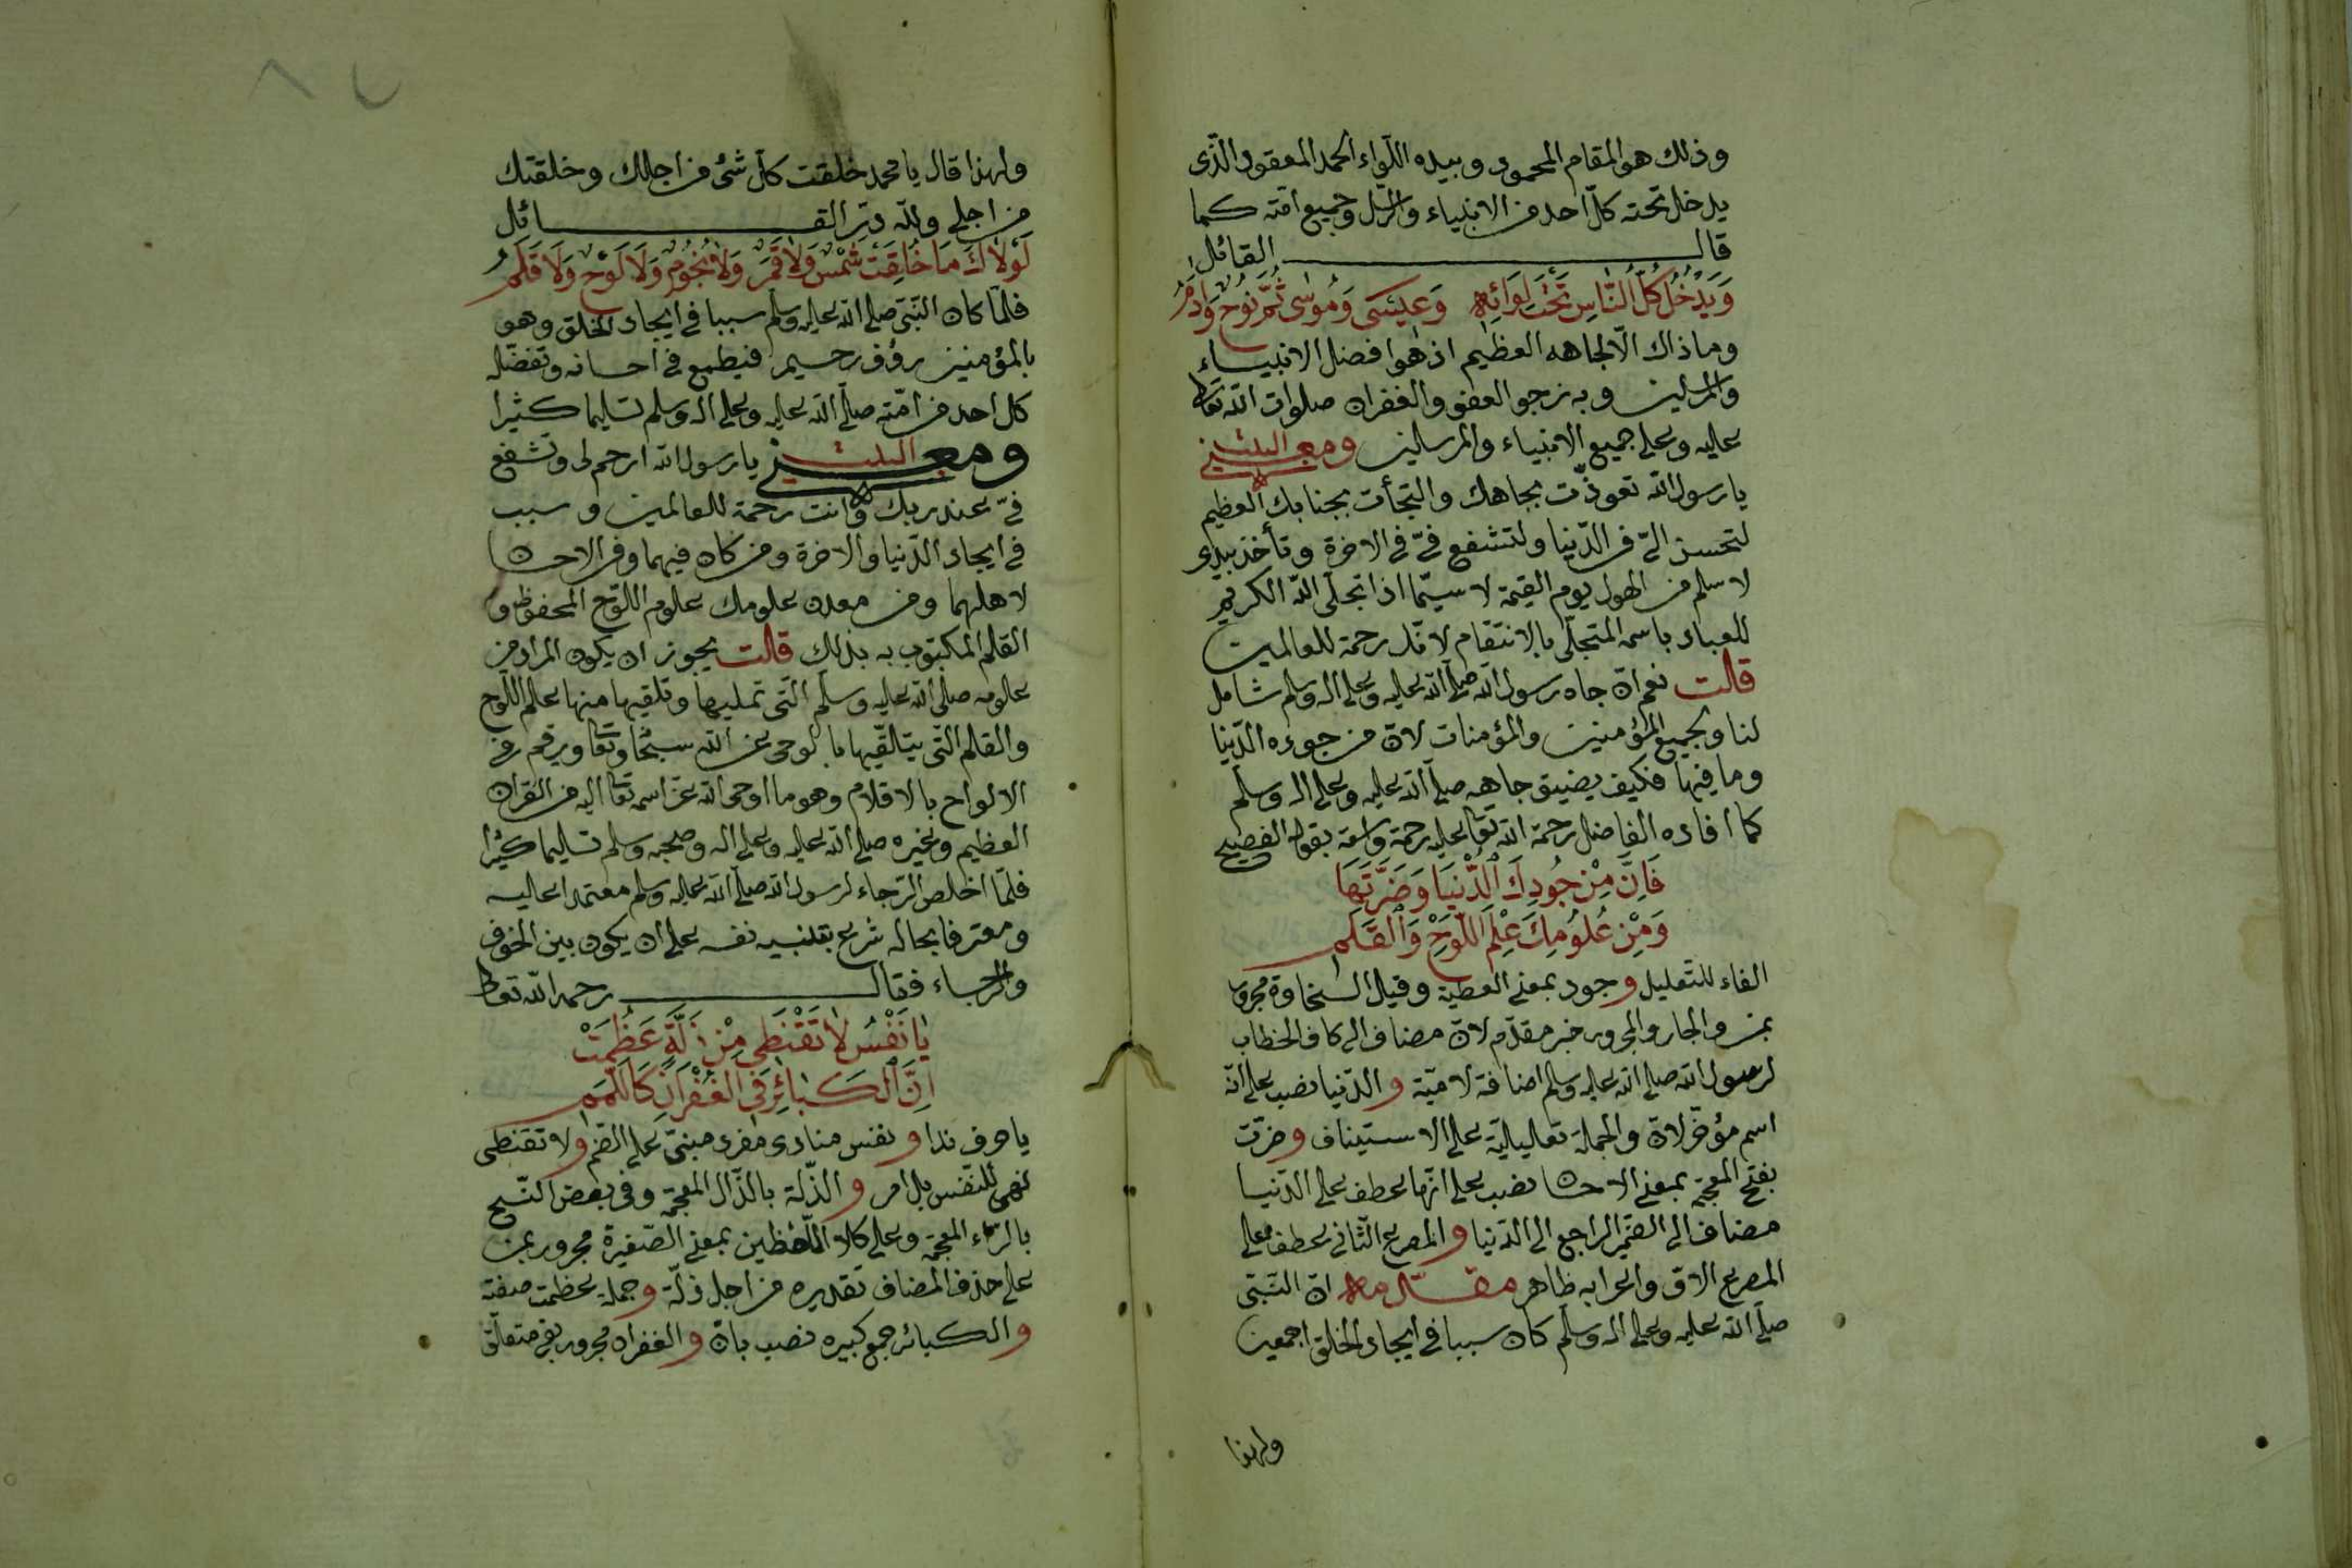 وذلك هو المقام المحمود وبيده اللّواء الحمد المعقود الّذى
يدخل تحته كلّ احد من الانبياء والرّسل وجميع امّته كما
قال القائل
وَيَدْخُلُ كُلُّ النَّاسِ تَحْتَ لِوَائِهِ وَعِيسَى وَمُوسٰى ثُمَّ نُوحٌ وَآدَمُ
وما ذاك الّا لجاهه العظيم اذ هو افضل الانبياء
والمرسلين وبه نرجو العفو والغفران صلوات الله تعالى
عليه وعلى جميع الانبياء والمرسلين ومعنى البيتين
يا رسول الله تعوذّت بجاهك والتجأت بجنابك العظيم
لتحسن الىّ فى الدّنيا ولتشفع فىّ فى الاخرة وتأخذ بيدى
لاسلم من الهول يوم القيمة لا سيّما اذا تجلّى الله الكريم
للعباد باسمه المتجلّى بالانتقام لانّك رحمة للعالمين
قلت نعم انّ جاه رسول الله صلّى الله عليه وعلى اله وسلم شامل
لنا ولجميع المؤمنين والمؤمنات لانّ من جوده الدّنيا
وما فيها فكيف يضيق جاهه صلّى الله عليه وعلى اله وسلّم
كما افاده الفاضل رحمة الله تعالى عليه رحمة واسعة بقوله الفصيح
فَاِنَّ مِنْ جُودِكَ الدُّنْيَا وَضَرَّتَهَا
وَمِنْ عُلُومِكَ عِلْمَ اللَّوْحِ وَالْقَلَمِ
الفاء للتّعليل وجود بمعنى العطية وقيل السّخاوة مجرور
بمن والجار والمجرور خبر مقدّم لانّ مضاف الى كاف الخطاب
لرسول الله صلى الله عليه وسلم اضافة لاميّة والدّنيا نصب على انّه
اسم مؤخّر لانّ والجملة تعليليّة على الاستيناف وضرّت
بفتح المعجمة بمعنى الاحسان نصب على انّها عطف على الدّنيا
مضاف الى الضّمير الراجع الى الدّنيا والمصرع الثّانى عطف على
المصرع الاوّل واعرابه ظاهر مقدّمه انّ النّبىّ
صلّى الله عليه وعلى اله وسلّم كان سببا فى ايجاد الخلق اجمعين
ولهذا
ولهذا قال يا محمد خلقت كلّ شئ من اجلك وخلقتك
من اجلى ولله درّ القائل
لَوْلَاكَ مَا خُلِقَتْ شَمْسٌ وَلَا قَمَرٌ وَلَا نُجُومٌ وَلَا لَوْحٌ وَلَا قَلَمُ
فلمّا كان النّبىّ صلى الله عليه وسلم سببا فى ايجاد الخلق وهو
بالمؤمنين رؤف رحيم فيطمع فى احسانه وتفضّله
كل احد من امّته صلّى الله عليه وعلى اله وسلم تسليما كثيرا
ومعنى البيت يا رسول الله ارحم لى وتشفع
فىّ عند ربك وانت رحمة للعالمين وسبب
فى ايجاد الدّنيا والاخرة ومن كان فيهما وفر الاحسان
لاهلهما ومن معدن علومك علوم اللّوح المحفوظ و
القلم المكتوب به بذلك قلت يجوز ان يكون المراد من
علومه صلّى الله عليه وسلّم الّتى تمليها وتلقيها منها علم اللّوح
والقلم الّتى يتلقّيها بالوحى عن الله سبحانه وتعالى ويرقم من
الالواح بالاقلام وهو ما اوحى الله عزّ اسمه تعالى اليه من القران
العظيم وغيره صلى الله عليه وعلى اله وصحبه وسلم تسليما كثيرا
فلمّا اخلص الرّجاء لرسول الله صلّى الله عليه وسلم معتمدا عليه
ومعترفا بحاله شرع بتنبيه نفسه على ان يكون بين الخوف
والرّجاء فقال رحمه الله تعالى
يَا نَفْسُ لَا تَقْنَطِى مِنْ زَلَّةٍ عَظُمَتْ
اِنَّ الْكَبَائِرَ فِى الْغُفْرَانِ كَاللَّمَمِ
يا حرف ندا ونفس منادى مفرد مبنىّ على الضّم ولا تقنطى
نهى للنّفس بل امر والذّلة بالذّال المعجمة وفى بعض النّسخ
بالزّاء المعجمة وعلى كلا اللّفظين بمعنى الصّغيرة مجرور بمن
على حذف المضاف تقديره من اجل ذلّة وجملة عظمت صفة
والكبائر جمع كبيره نصب بانّ والغفران مجرور بفى متعلّق